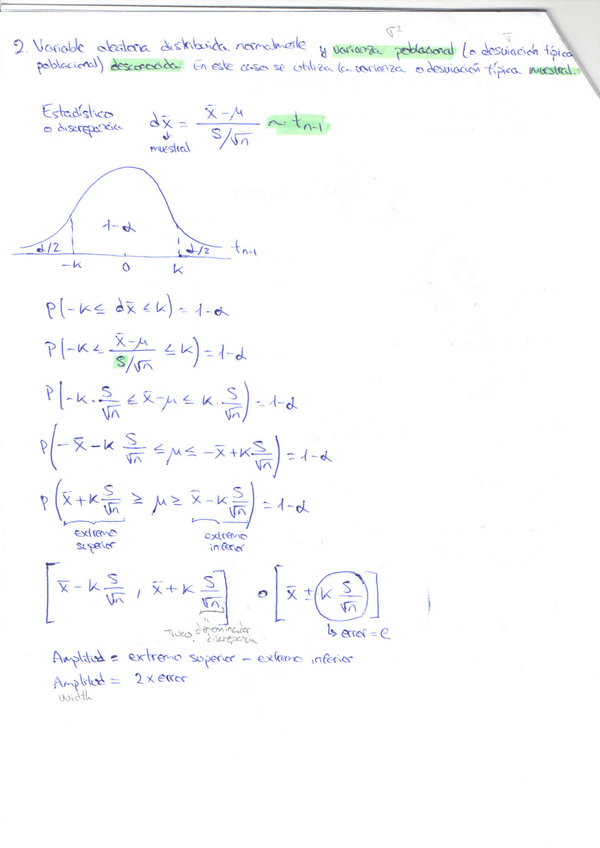 σ² σ
2. Variable aleatoria distribuida normalmente y varianza poblacional (o desviación típica
poblacional) desconocida. En este caso se utiliza la varianza o desviación típica muestral.
Estadístico
o discrepancia
dx̄ = (x̄-μ)/(S/√n) ~ t n-1
↓
muestral
1-α
α/2 α/2 t n-1
-k 0 k
P(-k ≤ dx̄ ≤ k) = 1-α
P(-k ≤ (x̄-μ)/(S/√n) ≤ k) = 1-α
P(-k · S/√n ≤ x̄-μ ≤ k · S/√n) = 1-α
P(-x̄ - k S/√n ≤ μ ≤ -x̄ + k S/√n) = 1-α
P(x̄ + k S/√n ≥ μ ≥ x̄ - k S/√n) = 1-α
extremo extremo
superior inferior
[x̄ - k S/√n , x̄ + k S/√n] o [x̄ ± k S/√n]
denominador
discrepancia
↳ error = e
Amplitud = extremo superior - extremo inferior
Amplitud = 2 x error
width